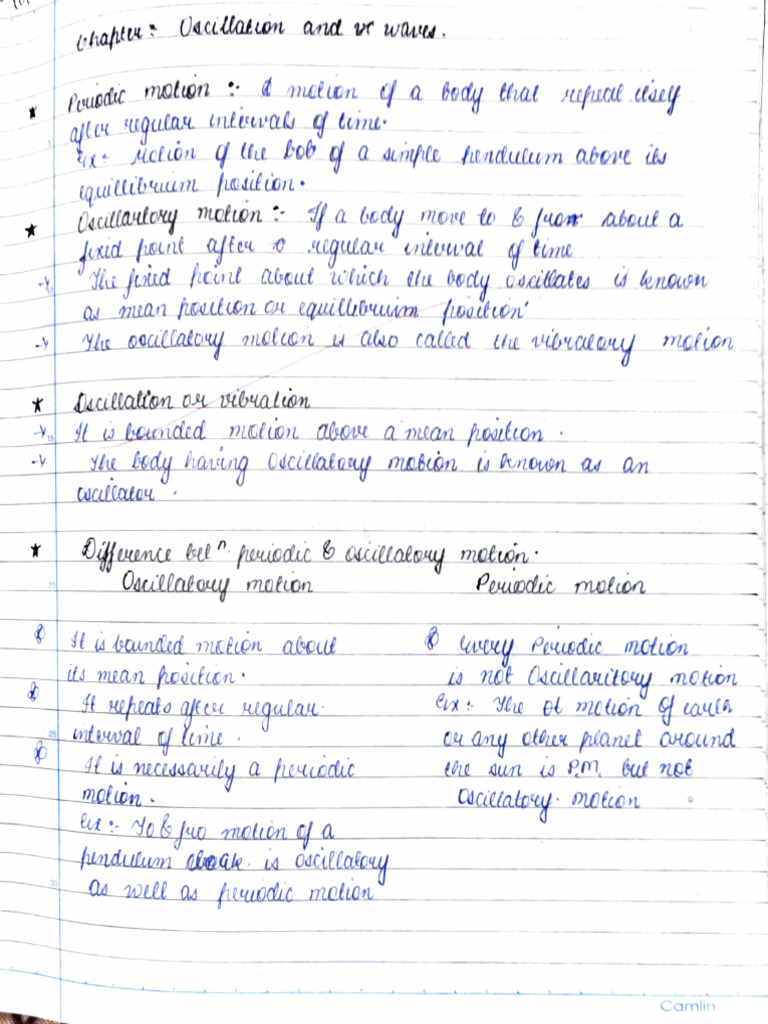 Chapter:- Oscillation and vr waves.
★ Periodic motion :- A motion of a body that repeat itself
after regular intervals of time.
Ex:- Motion of the bob of a simple pendulum above its
equillibrium position.
★ Oscillartory motion :- If a body move to & from about a
fixid point after regular interval of time
→ The fixed point about which the body oscillates is known
as mean position or equillibrium position'
→ The oscillatory motion is also called the vibratory motion
★ Oscillation or vibration
→ It is bounded motion above a mean position.
→ The body having Oscillatory motion is known as an
oscillator.
★ Difference betn. periodic & oscillatory motion.
Oscillatory motion Periodic motion
It is bounded motion about
its mean position.
It repeats after regular
interval of time.
It is necessarily a periodic
motion.
Ex:- To & fro motion of a
pendulum is oscillatory
as well as periodic motion
Every Periodic motion
is not Oscillaritory motion
Ex:- The motion of earth
or any other planet around
the sun is P.M. but not
Oscillatory. motion
Camlin